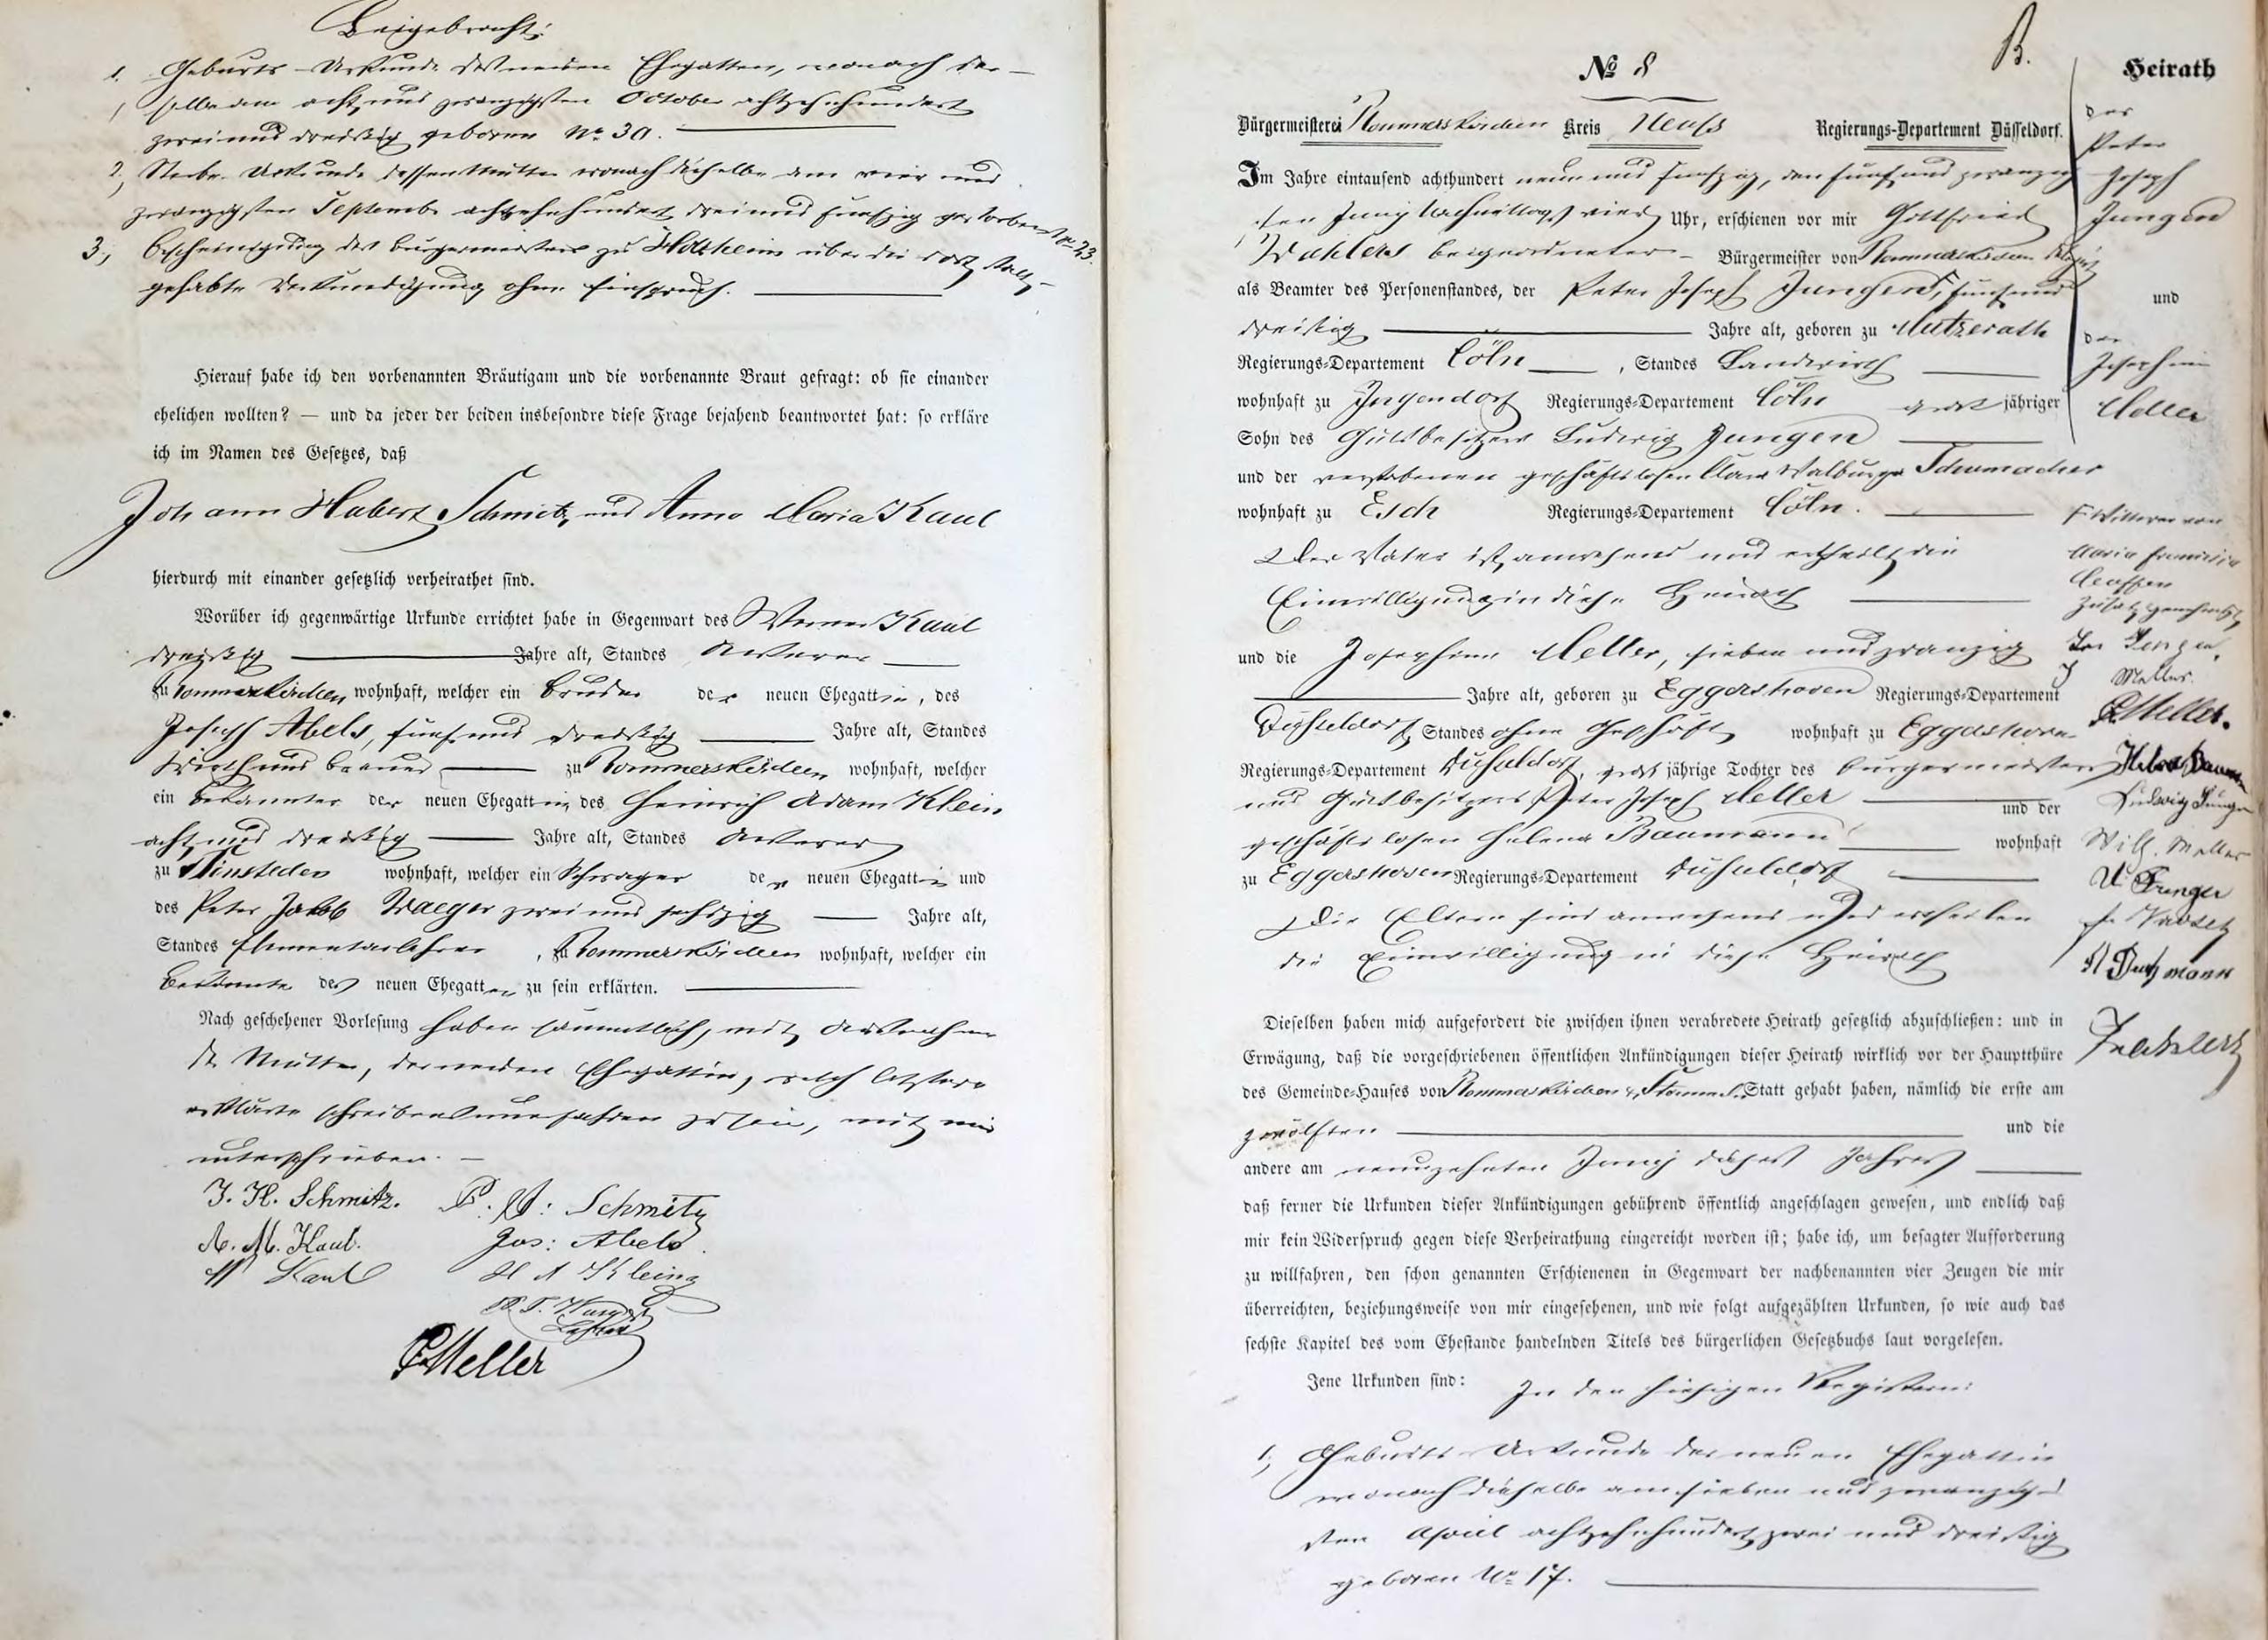 Beigebracht:
1. Geburts-Urkunde des neuen Ehegatten, wonach der-
selbe am acht und zwanzigsten October achtzehnhundert
zwei und dreißig geboren No 30.
2, Sterbe-Urkunde dessen Mutter wonach dieselbe am vier und
zwanzigsten September achtzehnhundert drei und fünfzig gestorben No 23.
3, Bescheinigung des Bürgermeisters zu über die dort statt-
gehabte Verkündigung ohne Einspruch.
Hierauf habe ich den vorbenannten Bräutigam und die vorbenannte Braut gefragt: ob sie einander
ehelichen wollten? — und da jeder der beiden insbesondre diese Frage bejahend beantwortet hat: so erkläre
ich im Namen des Gesetzes, daß
Johann Hubert Schmitz und Anna Maria Kaul
hierdurch mit einander gesetzlich verheirathet sind.
Worüber ich gegenwärtige Urkunde errichtet habe in Gegenwart des Werner Kaul
dreißig Jahre alt, Standes Ackerer
zu Rommerskirchen wohnhaft, welcher ein Bruder der neuen Ehegattin, des
Joseph Abels, fünf und dreißig Jahre alt, Standes
Wirth und Brauer zu Rommerskirchen wohnhaft, welcher
ein Bekannter der neuen Ehegattin des Heinrich Adam Klein
acht und dreißig Jahre alt, Standes Ackerer
zu Sinsteden wohnhaft, welcher ein Schwager der neuen Ehegattin und
des Peter Jakob zwei und sechszig Jahre alt,
Standes Elementarlehrer, zu Rommerskirchen wohnhaft, welcher ein
Bekannter der neuen Ehegatten zu sein erklärten.
Nach geschehener Vorlesung haben sämmtlich, mit Ausnahme
der Mutter, der neuen Ehegattin, welch letztere
erklärte schreibensunerfahren zu sein, mit mir
unterschrieben. —
J. H. Schmitz. P. : Schmitz
A. M. Kaul. Jos: Abels.
W Kaul H A Klein
Lehrer
P. Meller
B.
No 8 Heirath
Bürgermeisterei Rommerskirchen Kreis Neuß Regierungs-Departement Düsseldorf.
Im Jahre eintausend achthundert neun und fünfzig, den fünf und zwanzig
sten Juny Nachmittags vier Uhr, erschienen vor mir Gottfried
Wahlers beigeordneter Bürgermeister von Rommerskirchen
als Beamter des Personenstandes, der Peter Joseph Jungen, fünf und
dreißig Jahre alt, geboren zu Mutzerath
Regierungs-Departement Cöln, Standes Landwirth
wohnhaft zu Ingendorf Regierungs-Departement Cöln groß jähriger
Sohn des Gutsbesitzers Ludwig Jungen
und der verstorbenen geschäftslosen Clara Walburga Schumacher
wohnhaft zu Esch Regierungs-Departement Cöln.
Der Vater ist anwesend und ertheilt die
Einwilligung in diese Heirath
und die Josephine Meller, sieben und zwanzig
Jahre alt, geboren zu Eggershoven Regierungs-Departement
Düsseldorf Standes ohne Geschäft wohnhaft zu Eggershoven
Regierungs-Departement Düsseldorf, groß jährige Tochter des Bürgermeisters
und Gutsbesitzers Peter Joseph Meller und der
geschäftslosen Helena Baumann wohnhaft
zu Eggershoven Regierungs-Departement Düsseldorf
Die Eltern sind anwesend und ertheilen
die Einwilligung in diese Heirath
Dieselben haben mich aufgefordert die zwischen ihnen verabredete Heirath gesetzlich abzuschließen: und in
Erwägung, daß die vorgeschriebenen öffentlichen Ankündigungen dieser Heirath wirklich vor der Hauptthüre
des Gemeinde-Hauses von Rommerskirchen & Stommeln Statt gehabt haben, nämlich die erste am
zwölften und die
andere am neunzehnten Juny dieses Jahres
daß ferner die Urkunden dieser Ankündigungen gebührend öffentlich angeschlagen gewesen, und endlich daß
mir kein Widerspruch gegen diese Verheirathung eingereicht worden ist; habe ich, um besagter Aufforderung
zu willfahren, den schon genannten Erschienenen in Gegenwart der nachbenannten vier Zeugen die mir
überreichten, beziehungsweise von mir eingesehenen, und wie folgt aufgezählten Urkunden, so wie auch das
sechste Kapitel des vom Ehestande handelnden Titels des bürgerlichen Gesetzbuchs laut vorgelesen.
Jene Urkunden sind: In den hiesigen Registern:
1, Geburts-Urkunde der neuen Ehegattin
wonach dieselbe am sieben und zwanzig-
sten April achtzehnhundert zwei und dreißig
geboren No 17.
des
Peter
Joseph
Jungen
und
der
Josephine
Meller
Wittwer von
Maria Francisca
Zusatz genehmigt
Jos Jungen,
J Meller.
P. Meller.
Ludwig Jungen
Wilh. Meller